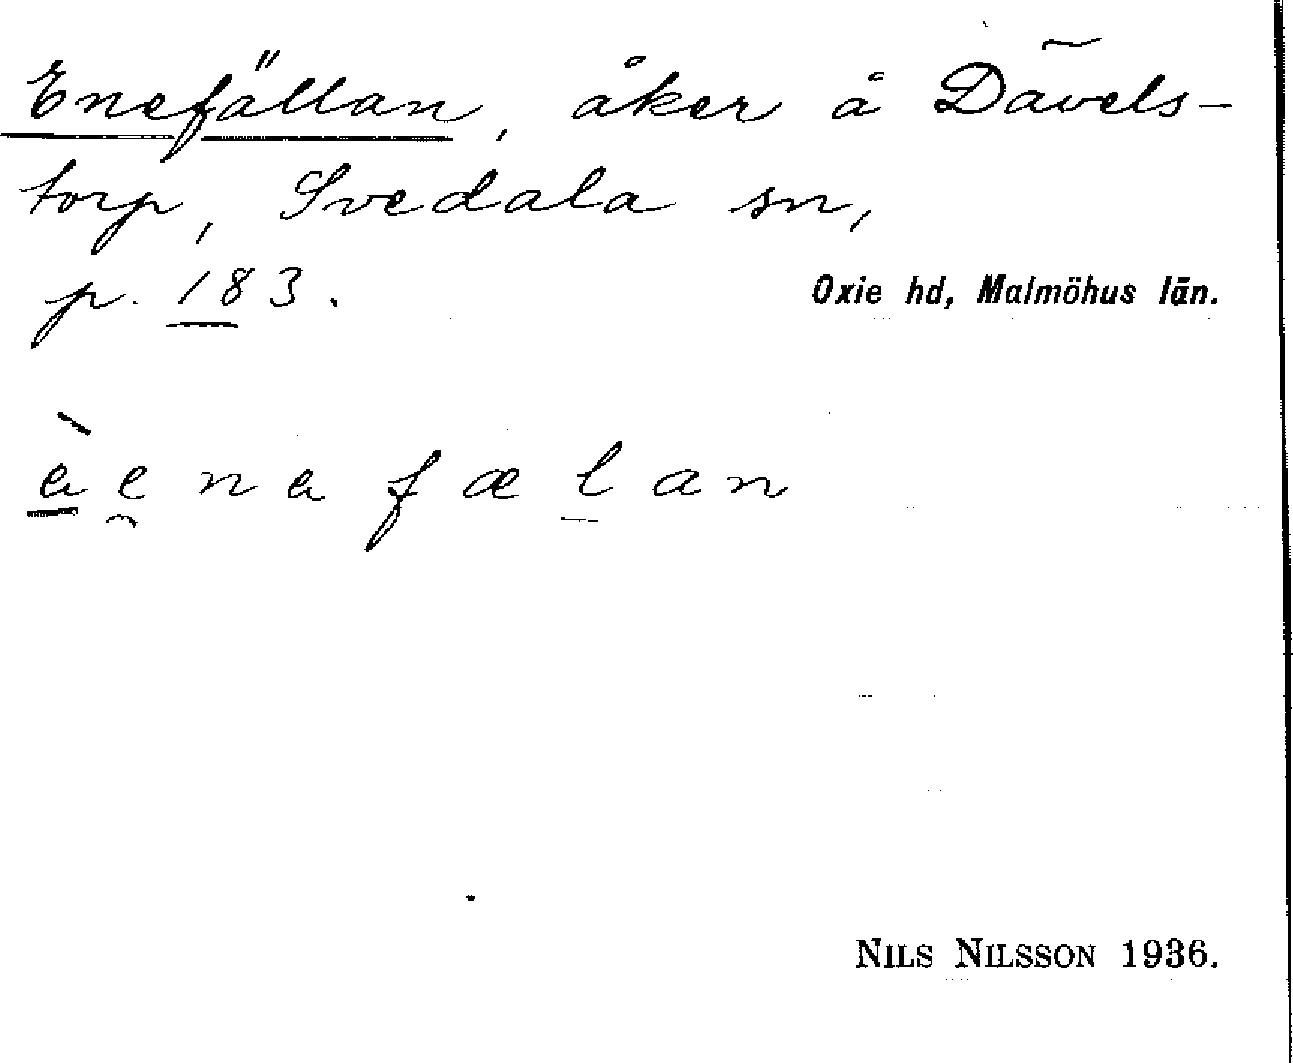 Enefällan, åker å Dävels-
torp, Svedala sn,
p. 183.
Oxie hd, Malmöhus län.
NILS NILSSON 1936.